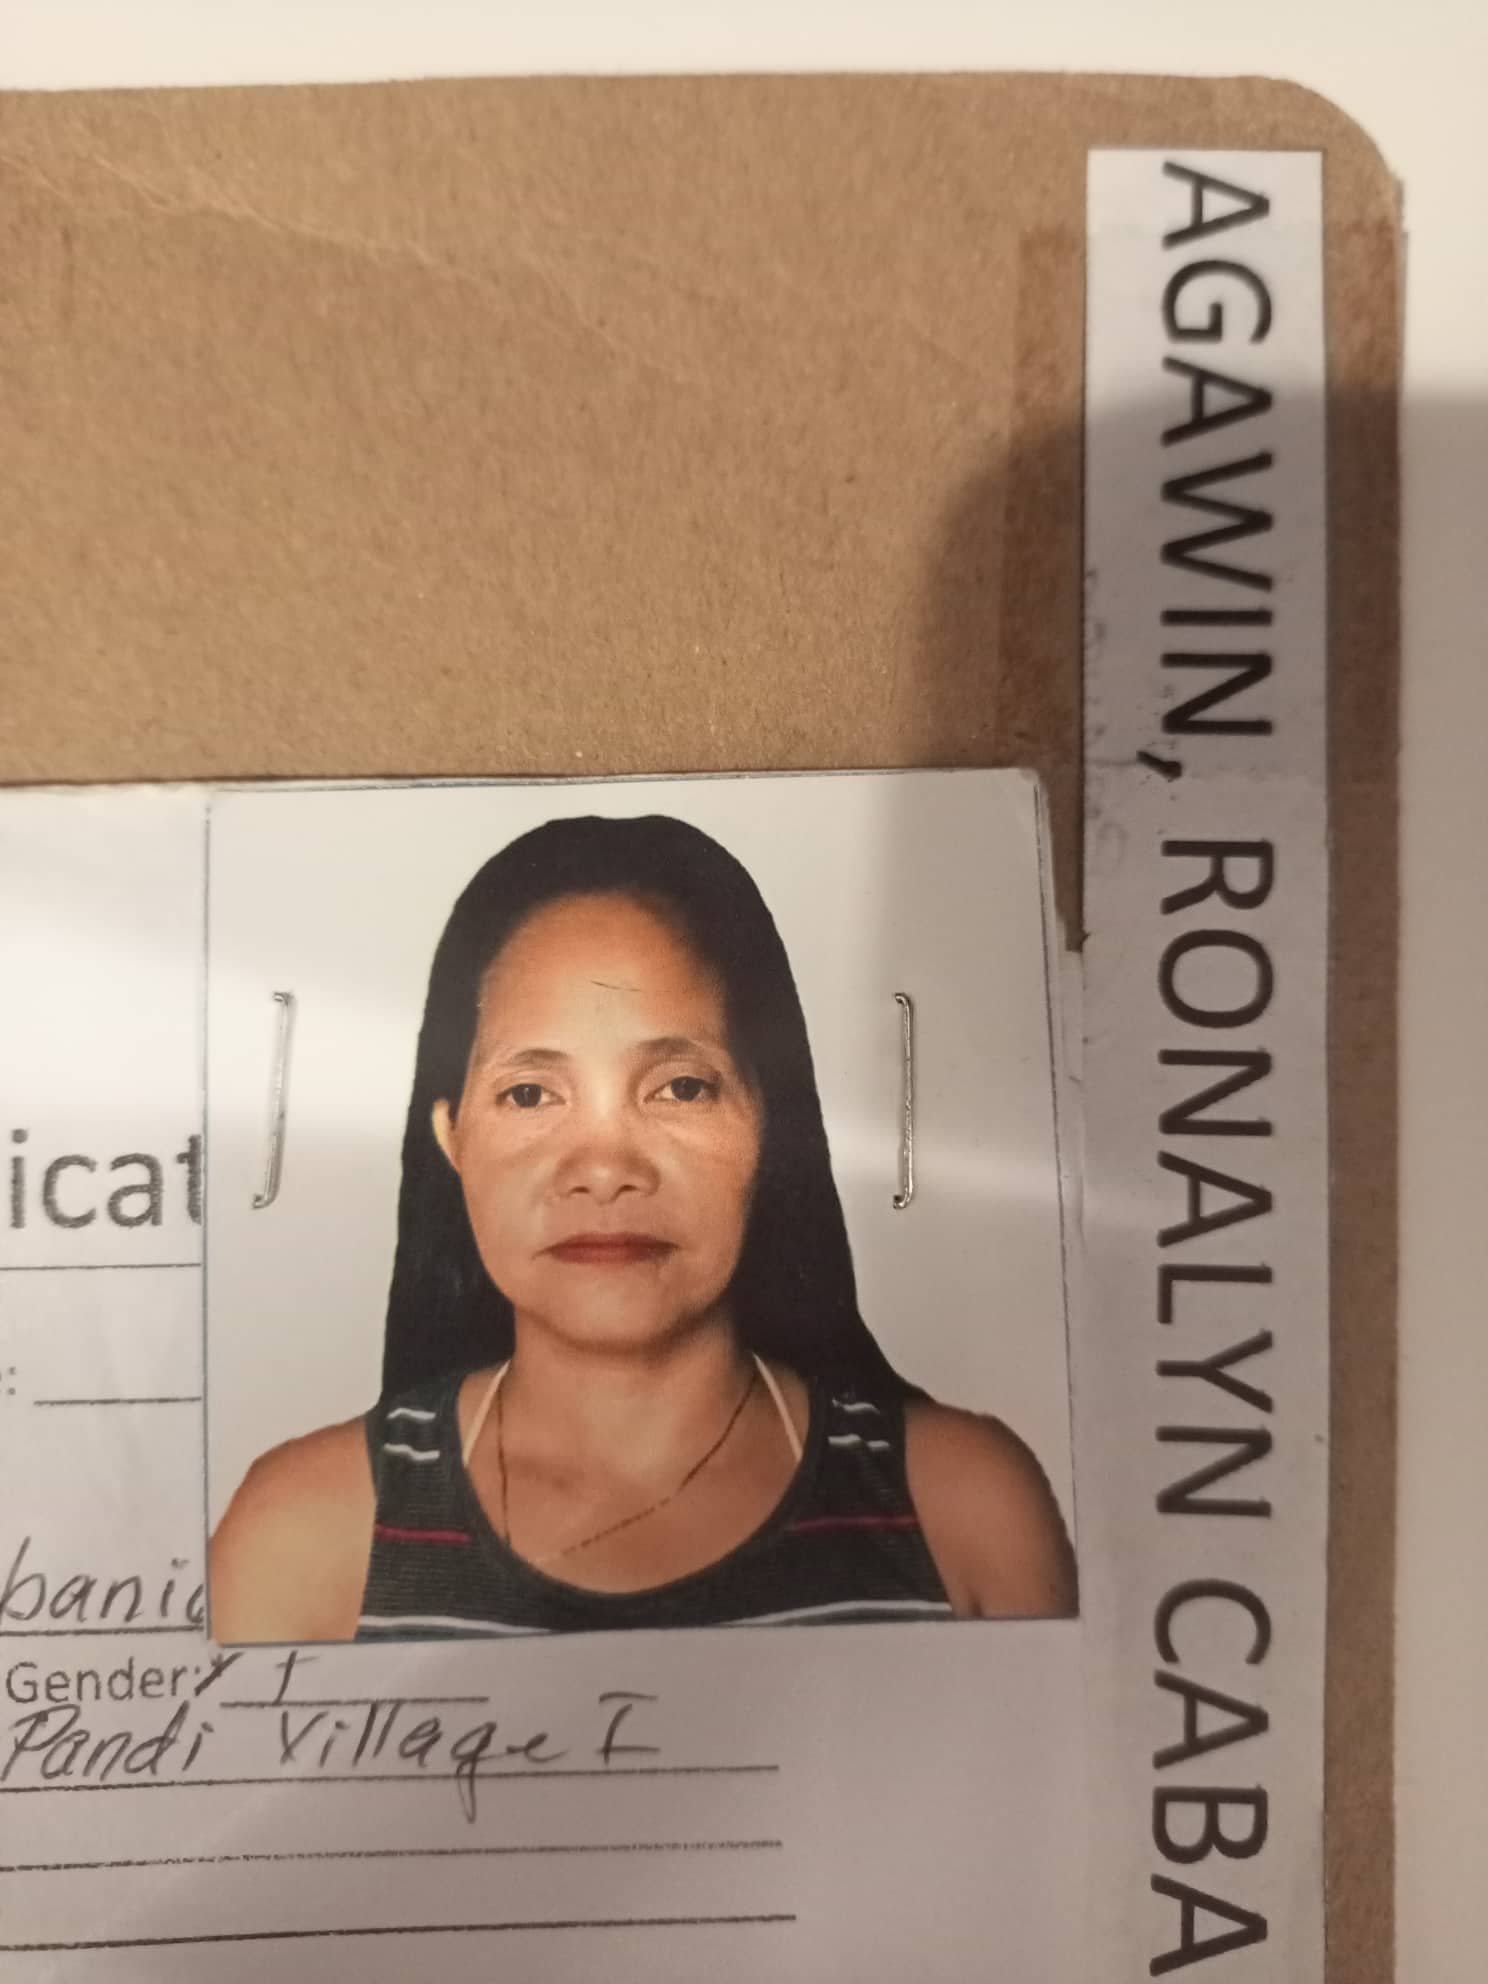 AGAWIN, RONALYN CABA
icat
:
banic
Gender: F
Pandi Village I